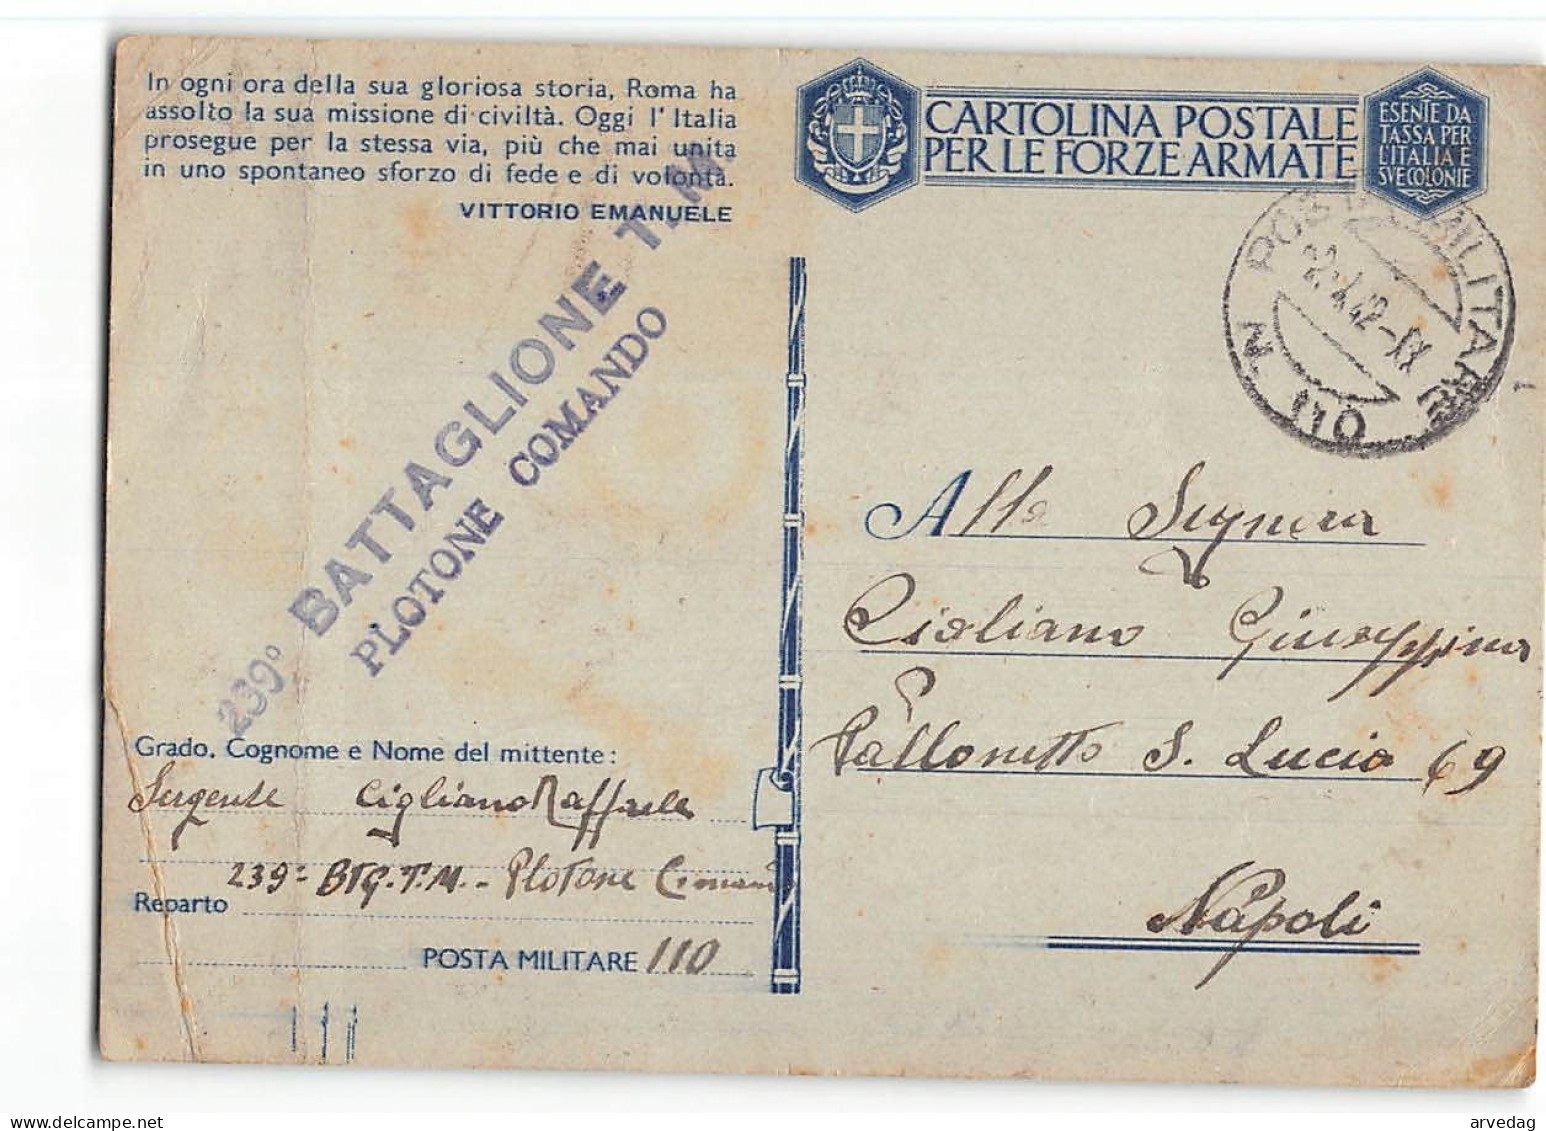 In ogni ora della sua gloriosa storia, Roma ha
assolto la sua missione di civiltà. Oggi l'Italia
prosegue per la stessa via, più che mai unita
in uno spontaneo sforzo di fede e di volontà.
VITTORIO EMANUELE
CARTOLINA POSTALE
PER LE FORZE ARMATE
ESENTE DA
TASSA PER
L'ITALIA E
SUE COLONIE
POSTA MILITARE
N
110
42-XX
239° BATTAGLIONE T. M.
PLOTONE COMANDO
Alla Signora
Cigliano Giuseppina
Pallonetto S. Lucia 69
Napoli
Grado, Cognome e Nome del mittente:
Sergente Cigliano Raffaele
239° BTG. T.M. - Plotone Comando
Reparto
POSTA MILITARE 110
arvedag